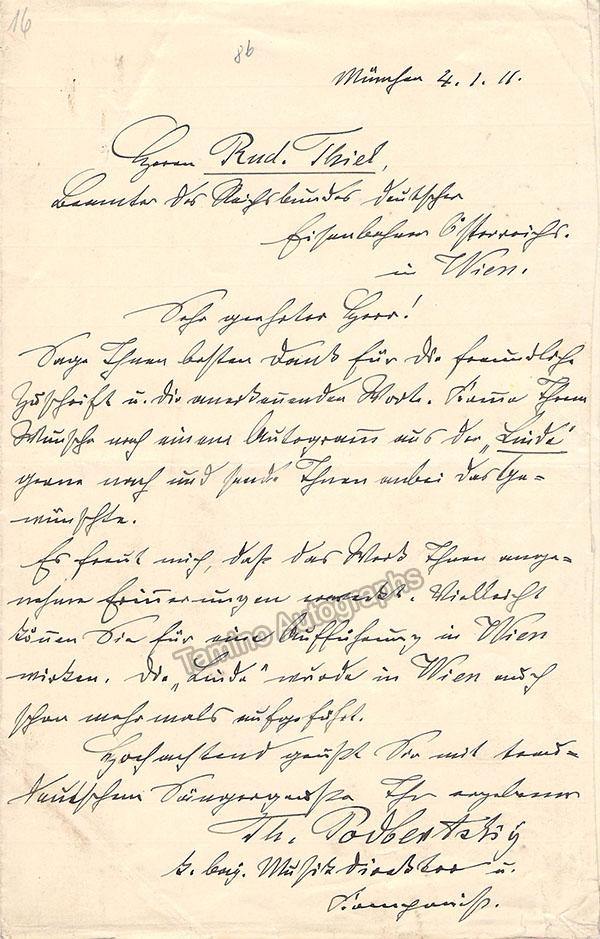 16
86
München 4.1.11.
Herrn Rud. Thiel,
Beamter des Reichsbundes deutscher
Eisenbahner Österreichs.
in Wien.
Sehr geehrter Herr!
Sage Ihnen besten Dank für die freundliche
Zuschrift u. die anerkennenden Worte. Komme Ihrem
Wunsche nach einem Autogramm aus der „Linde"
gerne nach und sende Ihnen anbei das Ge-
wünschte.
Es freut mich, daß das Werk Ihnen ange-
nehme Erinnerungen erweckt. Vielleicht
können Sie für eine Aufführung in Wien
wirken. Die „Linde" wurde in Wien auch
schon mehrmals aufgeführt.
Hochachtend grüßt Sie mit treu-
deutschem Sängergruße Ihr ergebener
Th. Podbertsky
k. bay. Musikdirektor u.
Komponist.
Tamino Autographs